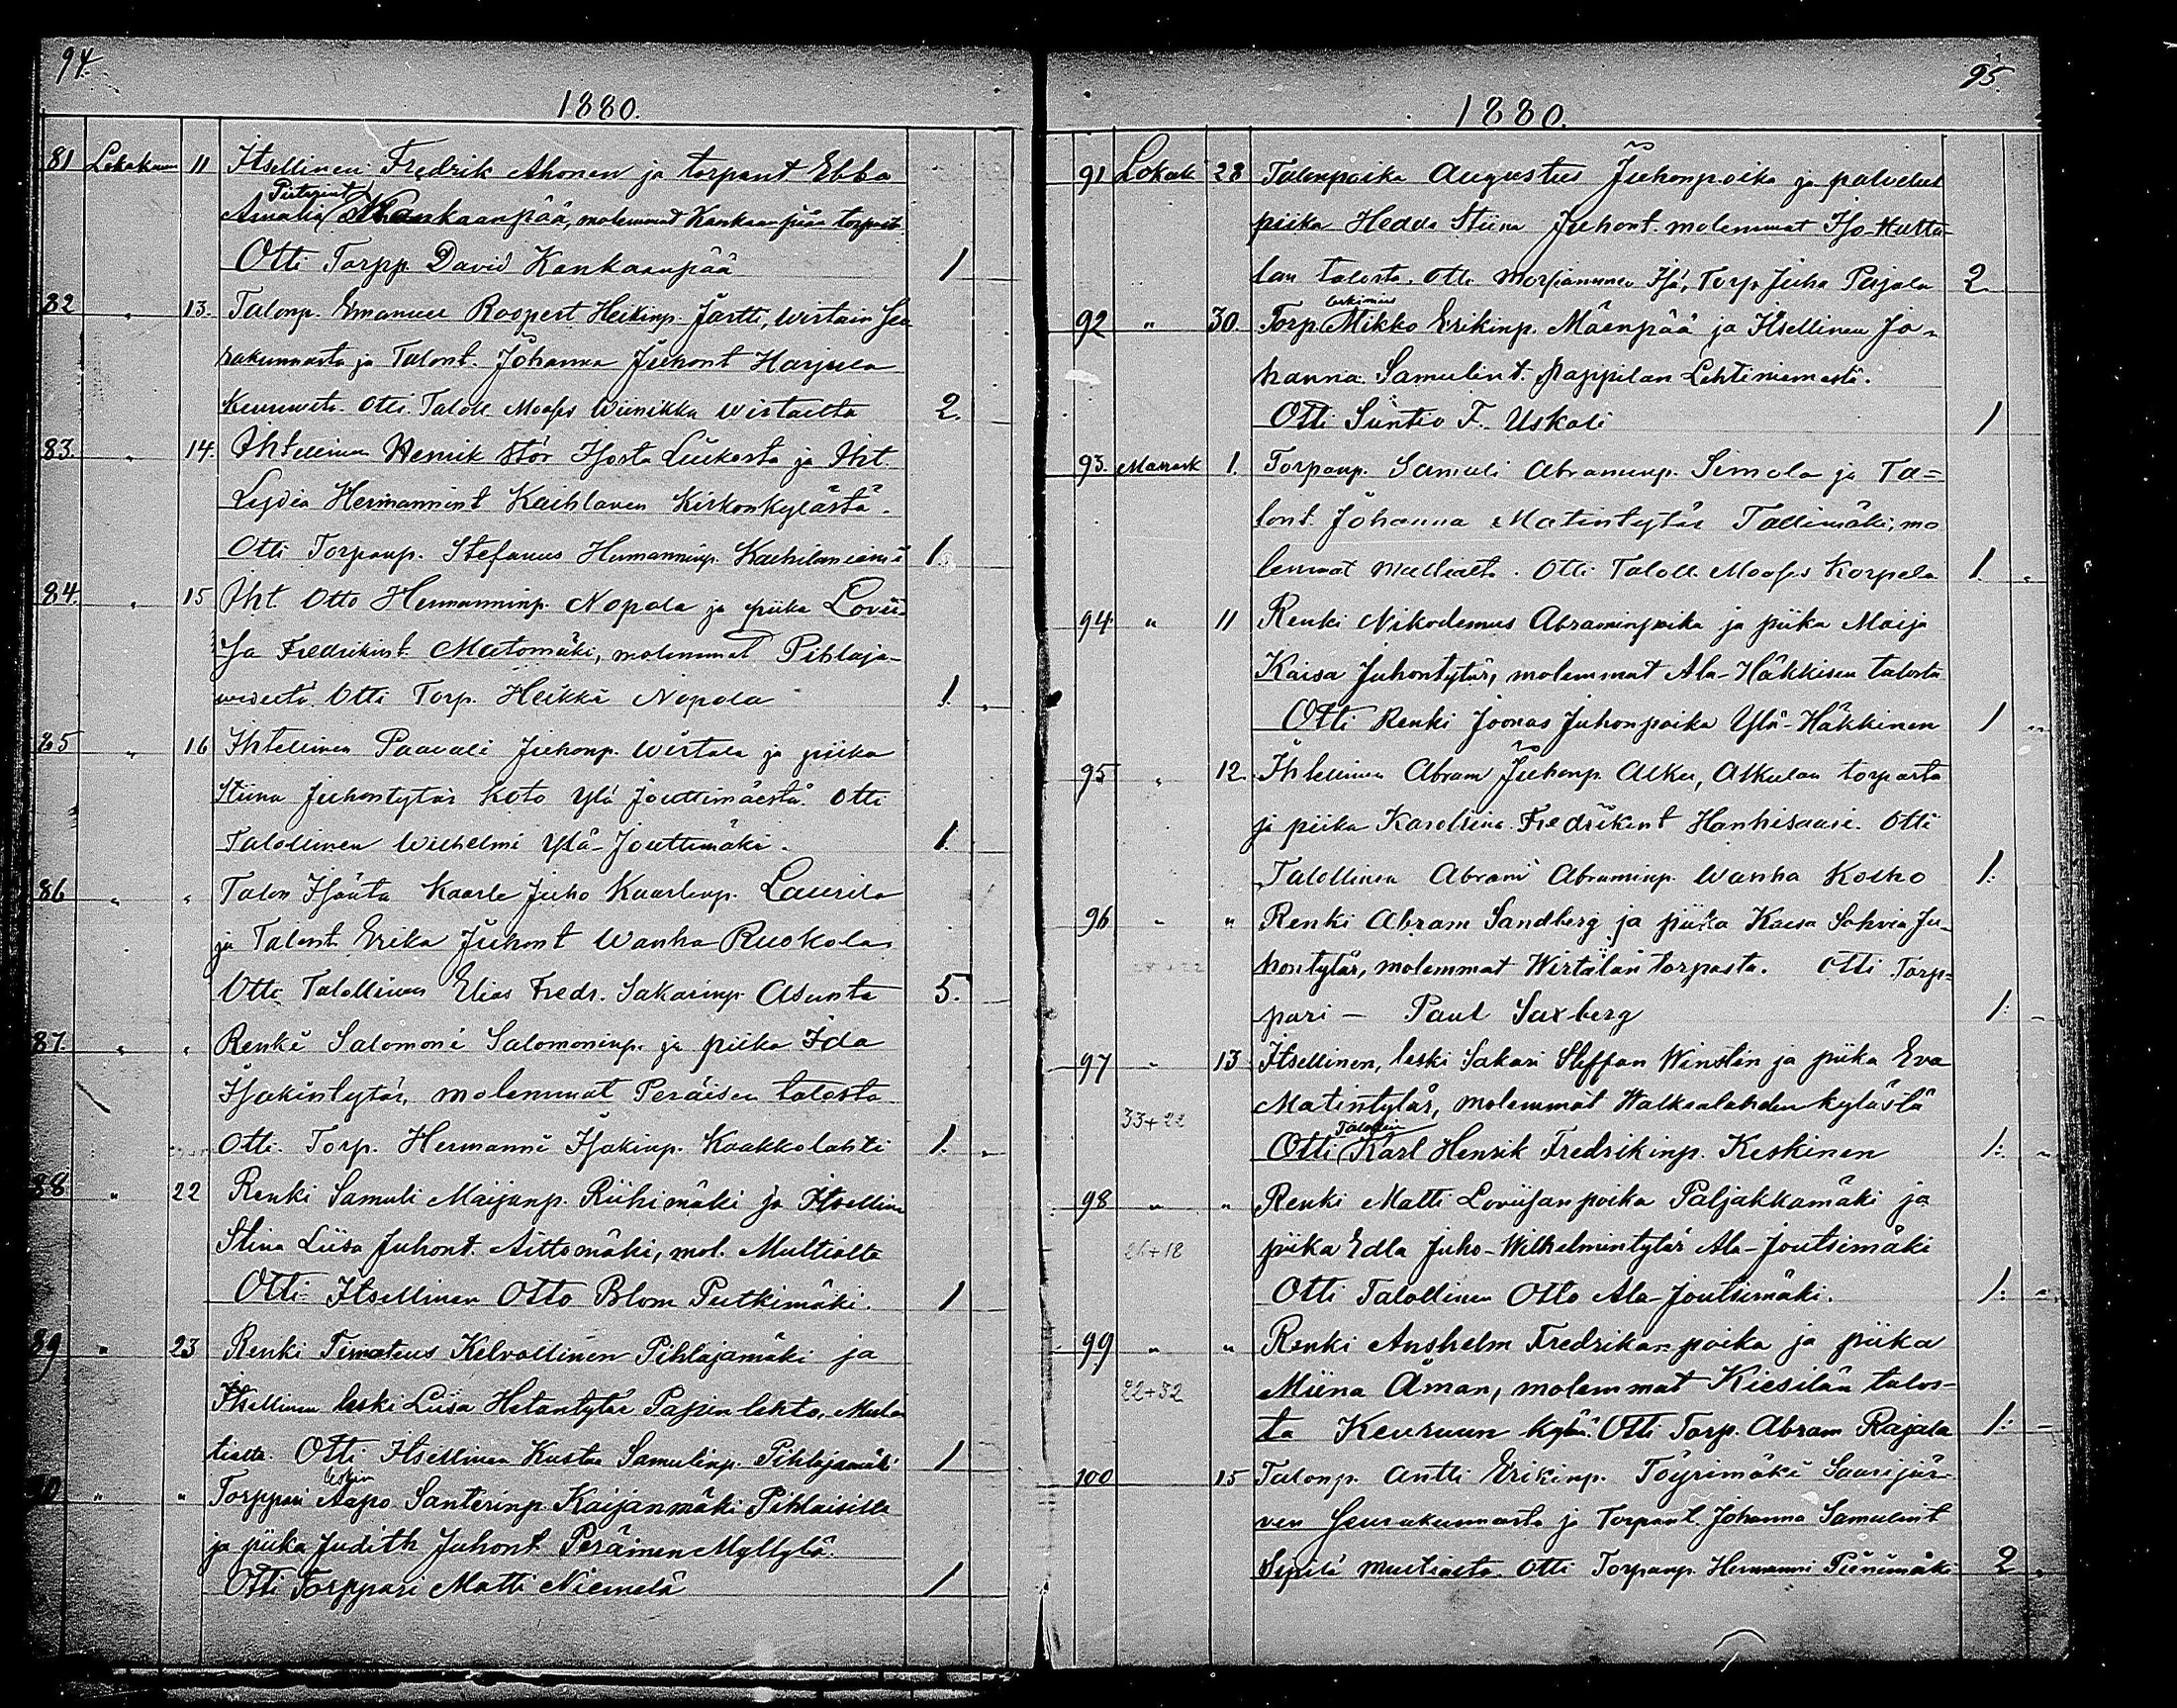 94.
1880.
81 Lokakuun 11 Itsellinen Fredrik Ahonen ja torpant Ebba
Pietarint
Amalia Kankaanpää, molemmat Kankaanpään torpast
Otti Torpp. David Kankaanpää 1
82 " 13. Talonp. Emanuel Roopert Heikinp. Jartti, Wirtain Seu
rakunnasta ja Talont. Johanna Juhont Harjula
Keuruulta. Otti Taloll. Moses Wiinikka Wirtailta 2.
83. " 14. Iht
Henrik Stör
ja Iht.
Lydia Hermannint Kaihlanen Kirkonkylästä.
Otti Torpanp. Stefanus Hermanninp. Kaihlaniemi 1.
84. " 15 Iht. Otto Hermanninp. Nopola ja piika Lovii-
sa Fredrikint. Matomäki, molemmat Pihlaja-
vedeltä. Otti Torp. Heikki Nopola 1. "
85 " 16 Ihtellinen Paavali Juhonp. Wirtala ja piika
Stiina Juhontytär Koto Ylä Jouttimäestä. Otti
Talollinen Wilhelmi Ylä-Jouttimäki. 1.
86 " " Talon Isäntä Kaarle Juho Kaarlenp. Laurila
ja Talont. Erika Juhont Wanha Ruokola
Otti Talollinen Elias Fredr. Sakarinp. Asunta 5.
87. " " Renki Salomoni Salomoninp. ja piika Ida
Isakintytär, molemmat Peräisen talosta
Otti Torp. Hermanni Isakinp. Kaakkolahti 1. "
88 " 22 Renki Samuli Maijanp. Riihimäki ja Itsellinen
Stina Liisa Juhont. Aittomäki, mol. Multialta
Otti Itsellinen Otto Blom Putkimäki. 1
89 " 23 Renki Timoteus Kelvollinen Pihlajamäki ja
Itsellinen leski Liisa Hetantytär Papinlehto, Mul-
tialta. Otti Itsellinen Kustaa Samulinp. Pihlajamäki 1
leskim
90 " " Torppari Aapo Santerinp. Kaijanmäki Pihlaisilla
ja piika Judith Juhont. Peräinen Myllylä.
Otti Torppari Matti Niemelä 1
95.
1880.
91 Lokak 28 Talonpoika Augustus Juhonpoika ja palvelus
piika Hedda Stiina Juhont. molemmat Iso-Hutta-
lan talosta. Otti Morsiammen Isä, Torp. Juha Pajala 2.
leskimies
92 " 30. Torp. Mikko Erikinp. Mäenpää ja Itsellinen Jo-
hanna Samulint. Pappilan Lehtiniemestä.
Otti Suntio F. Uskali 1
93. Marrask 1. Torpanp. Samuli Abraminp. Simola ja Ta=
lont. Johanna Matintytär Tallimäki, mo
lemmat Multialta. Otti Taloll. Moses Korpela 1. "
94. " 11 Renki Nikodemus Abraminpoika ja piika Maija
Kaisa Juhontytär, molemmat Ala-Häkkisen talosta
Otti Renki Joonas Juhonpoika Ylä-Häkkinen 1 "
95 " 12. Ihtellinen Abram Juhonp. Alku, Alkulan torpasta
ja piika Karoliina Fredrikint Hanhisaari. Otti
Talollinen Abram Abraminp. Wanha Kosho 1.
96 " " Renki Abram Sandberg ja piika Kaisa Sohvia Ju-
hontytär, molemmat Wirtalan torpasta. Otti Torp=
pari – Paul Saxberg 1: "
97 " 13 Itsellinen, leski Sakari Steffan Winstén ja piika Eva
33+22 Matintytär, molemmat Walkealahden kylästä
Talollin
Otti Karl Henrik Fredrikinp. Keskinen 1: "
98 " " Renki Matti Loviisanpoika Paljakkamäki ja
26+18 piika Edla Juho-Wilhelmintytär Ala-Joutsimäki
Otti Talollinen Otto Ala-Joutsimäki. 1: "
99 " " Renki Anshelm Fredrikanpoika ja piika
22+32 Miina Åman, molemmat Kiesilän talos-
ta Keuruun kylä. Otti Torp. Abram Rajala 1: "
100 15 Talonp. Antti Erikinp. Töyrimäki Saarijär-
ven Seurakunnasta ja Torpant. Johanna Samulint
Sepilä Multialta. Otti Torpanp. Hermanni Pienimäki 2 "